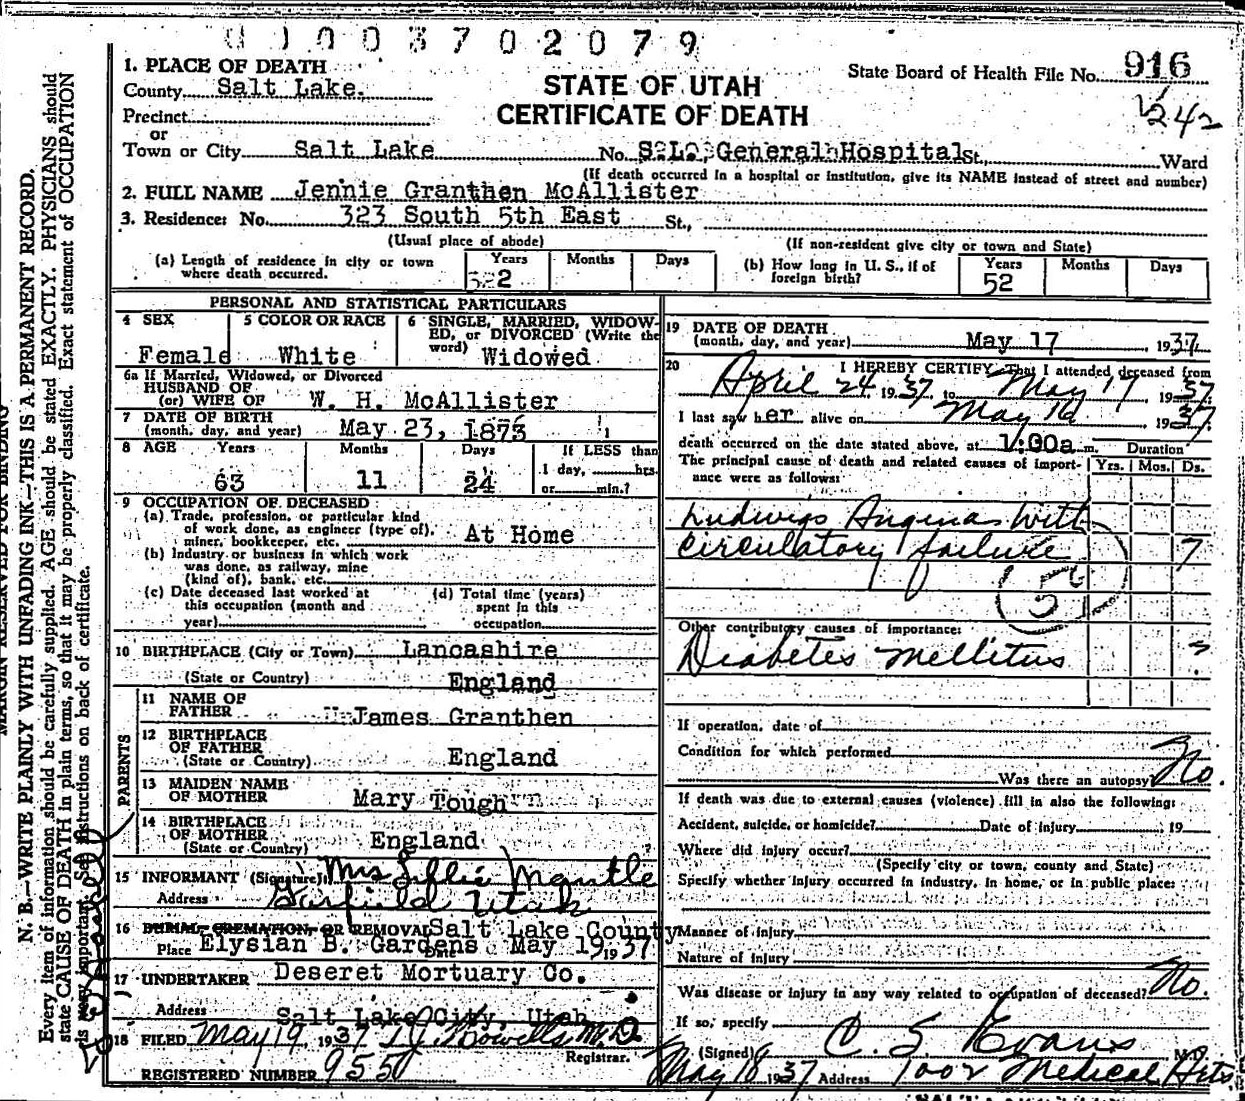 0 1 0 0 3 7 0 2 0 7 9
1. PLACE OF DEATH
County Salt Lake.
STATE OF UTAH
CERTIFICATE OF DEATH
State Board of Health File No. 916
242
Precinct
or
Town or City Salt Lake No. S.L. General Hospital St., Ward
(If death occurred in a hospital or institution, give its NAME instead of street and number)
2. FULL NAME Jennie Granthen McAllister
3. Residence: No. 323 South 5th East St.,
(Usual place of abode) (If non-resident give city or town and State)
(a) Length of residence in city or town where death occurred. Years Months Days
(b) How long in U. S., if of foreign birth? Years 52 Months Days
PERSONAL AND STATISTICAL PARTICULARS
4 SEX Female
5 COLOR OR RACE White
6 SINGLE, MARRIED, WIDOWED, or DIVORCED (Write the word) Widowed
6a If Married, Widowed, or Divorced
HUSBAND OF
(or) WIFE OF W. H. McAllister
7 DATE OF BIRTH
(month, day, and year) May 23, 1873
8 AGE Years 63 Months 11 Days 24 If LESS than
1 day, hrs.
or min.?
9 OCCUPATION OF DECEASED
(a) Trade, profession, or particular kind
of work done, as engineer (type of),
miner, bookkeeper, etc. At Home
(b) Industry or business in which work
was done, as railway, mine
(kind of), bank, etc.
(c) Date deceased last worked at
this occupation (month and
year)
(d) Total time (years)
spent in this
occupation
10 BIRTHPLACE (City or Town) Lancashire
(State or Country) England
PARENTS
11 NAME OF
FATHER James Granthen
12 BIRTHPLACE
OF FATHER
(State or Country) England
13 MAIDEN NAME
OF MOTHER Mary Tough
14 BIRTHPLACE
OF MOTHER
(State or Country) England
15 INFORMANT (Signature) Mrs Lillie Mantle
Address Garfield Utah
16 BURIAL, CREMATION, OR REMOVAL Salt Lake County
Place Elysian B. Gardens Date May 19 1937
17 UNDERTAKER Deseret Mortuary Co.
Address Salt Lake City, Utah
18 FILED May 19, 1937 M.D.
Registrar.
REGISTERED NUMBER 955
19 DATE OF DEATH
(month, day, and year) May 17, 1937
20 I HEREBY CERTIFY, That I attended deceased from
April 24 1937, to May 17 1937
I last saw her alive on May 16 1937
death occurred on the date stated above, at 1:00a m. Duration
The principal cause of death and related causes of importance were as follows: Yrs. Mos. Ds.
Ludwigs Angina with
circulatory failure 7
5
Other contributory causes of importance:
Diabetes Mellitus ?
If operation, date of
Condition for which performed
Was there an autopsy? No.
If death was due to external causes (violence) fill in also the following:
Accident, suicide, or homicide? Date of injury , 19
Where did injury occur?
(Specify city or town, county and State)
Specify whether injury occurred in industry, in home, or in public place:
Manner of injury
Nature of injury
Was disease or injury in any way related to occupation of deceased? No.
If so, specify
(Signed) C. S. Evans M.D.
May 18 1937 Address 1002 Medical Arts
MARGIN RESERVED FOR BINDING
N. B.—WRITE PLAINLY WITH UNFADING INK—THIS IS A PERMANENT RECORD.
Every item of information should be carefully supplied. AGE should be stated EXACTLY. PHYSICIANS should
state CAUSE OF DEATH in plain terms, so that it may be properly classified. Exact statement of OCCUPATION
is very important. See instructions on back of certificate.